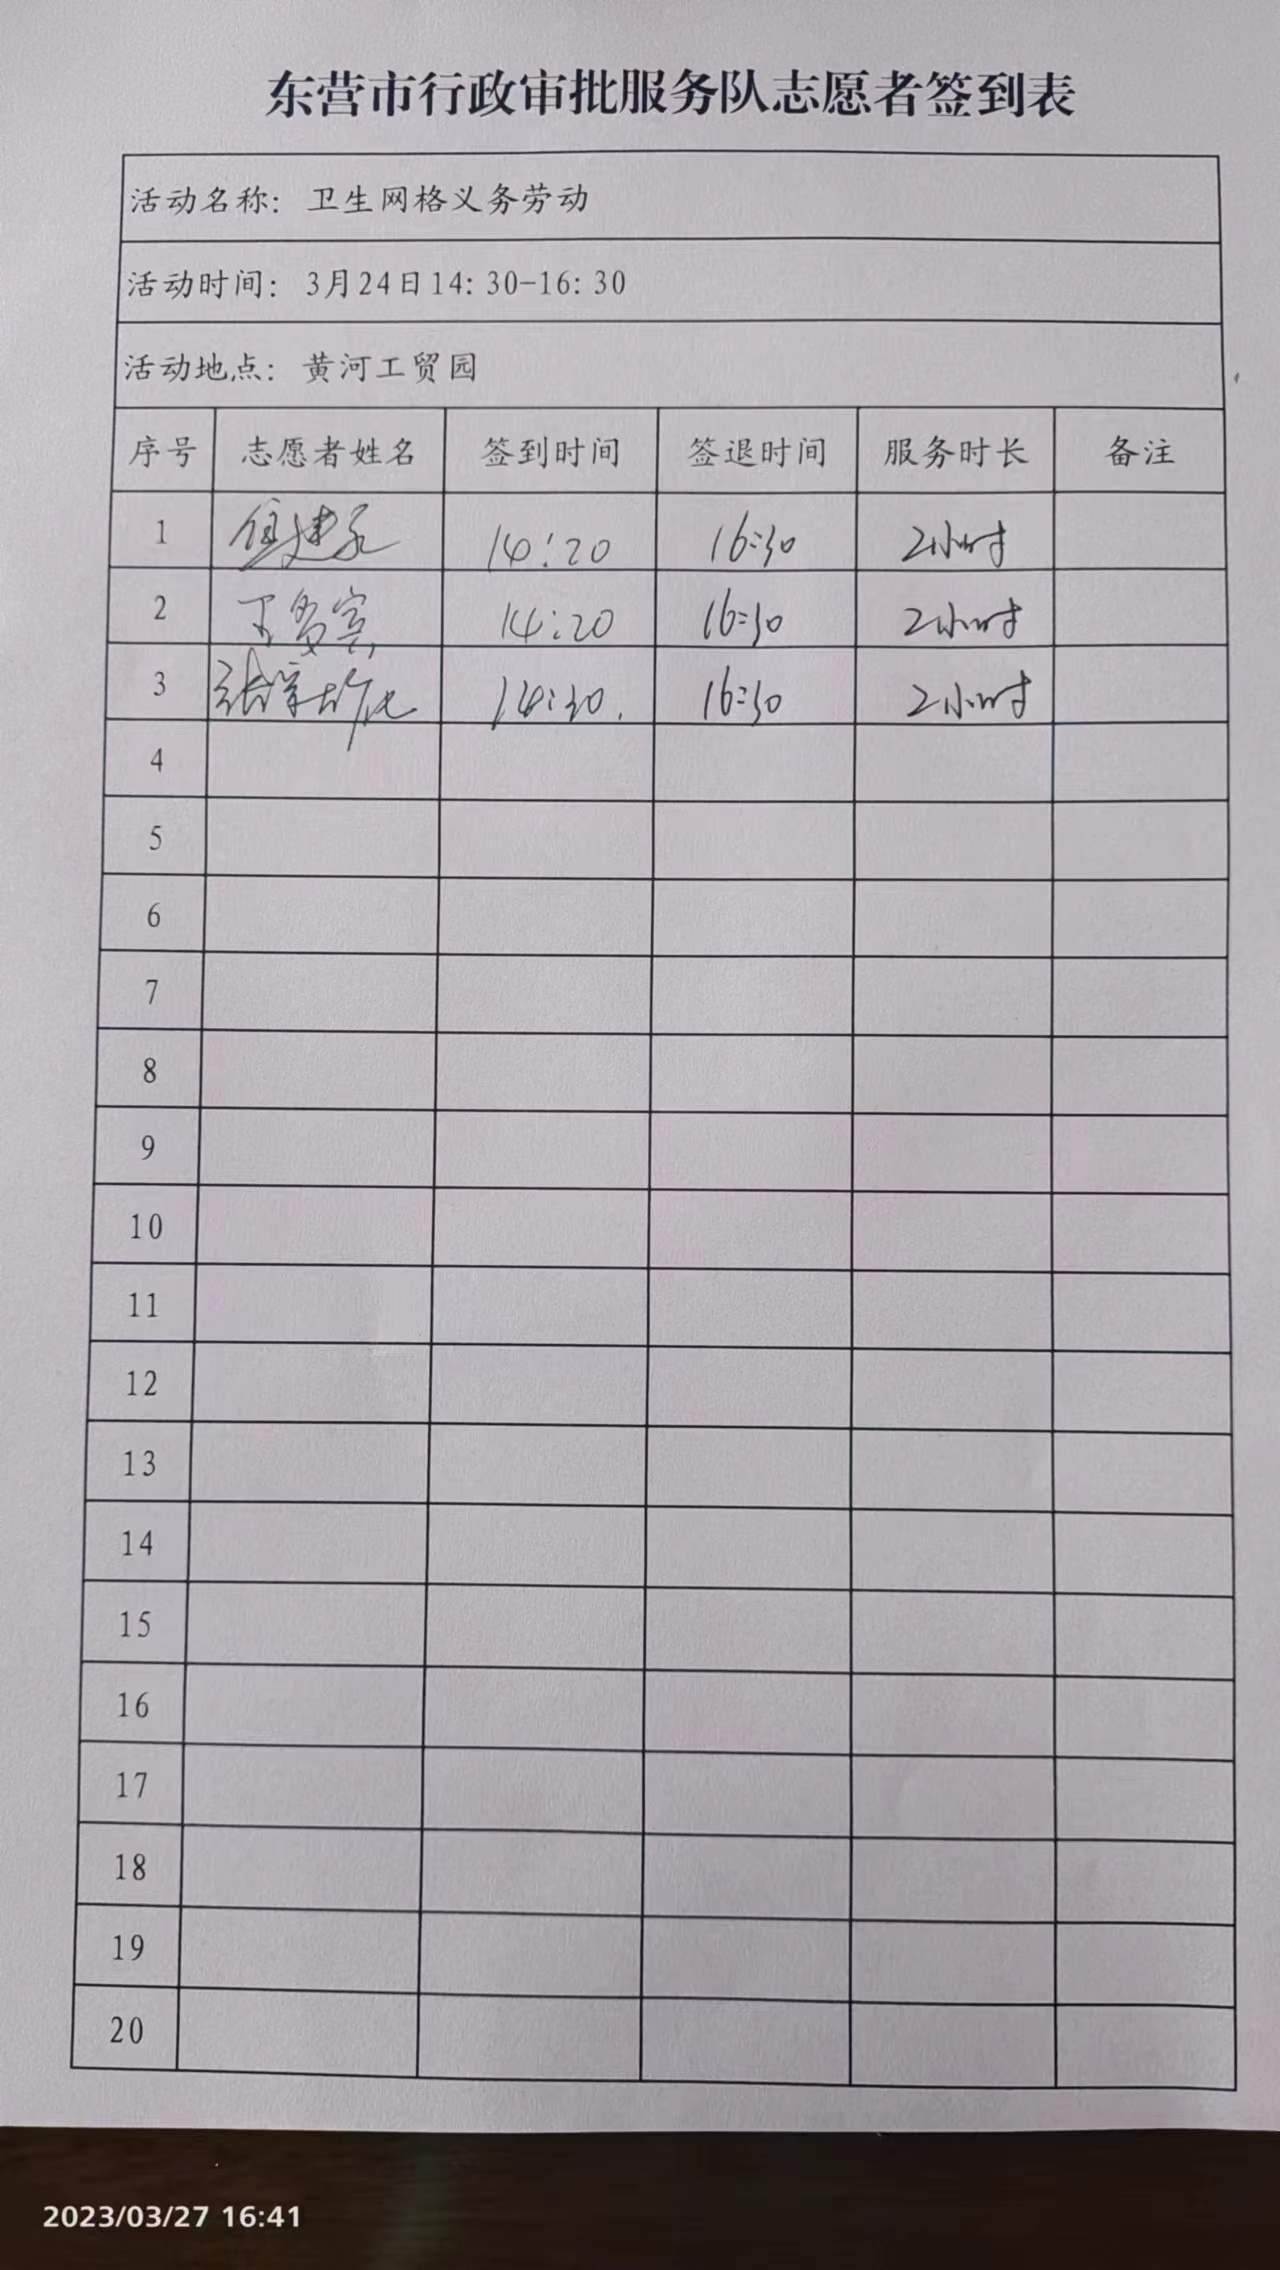 东营市行政审批服务队志愿者签到表
活动名称：卫生网格义务劳动
活动时间：3月24日14：30-16：30
活动地点：黄河工贸园
序号 志愿者姓名 签到时间 签退时间 服务时长 备注
1 14:20 16:30 2小时
2 14:20 16:30 2小时
3 14:30. 16:30 2小时
4
5
6
7
8
9
10
11
12
13
14
15
16
17
18
19
20
2023/03/27 16:41